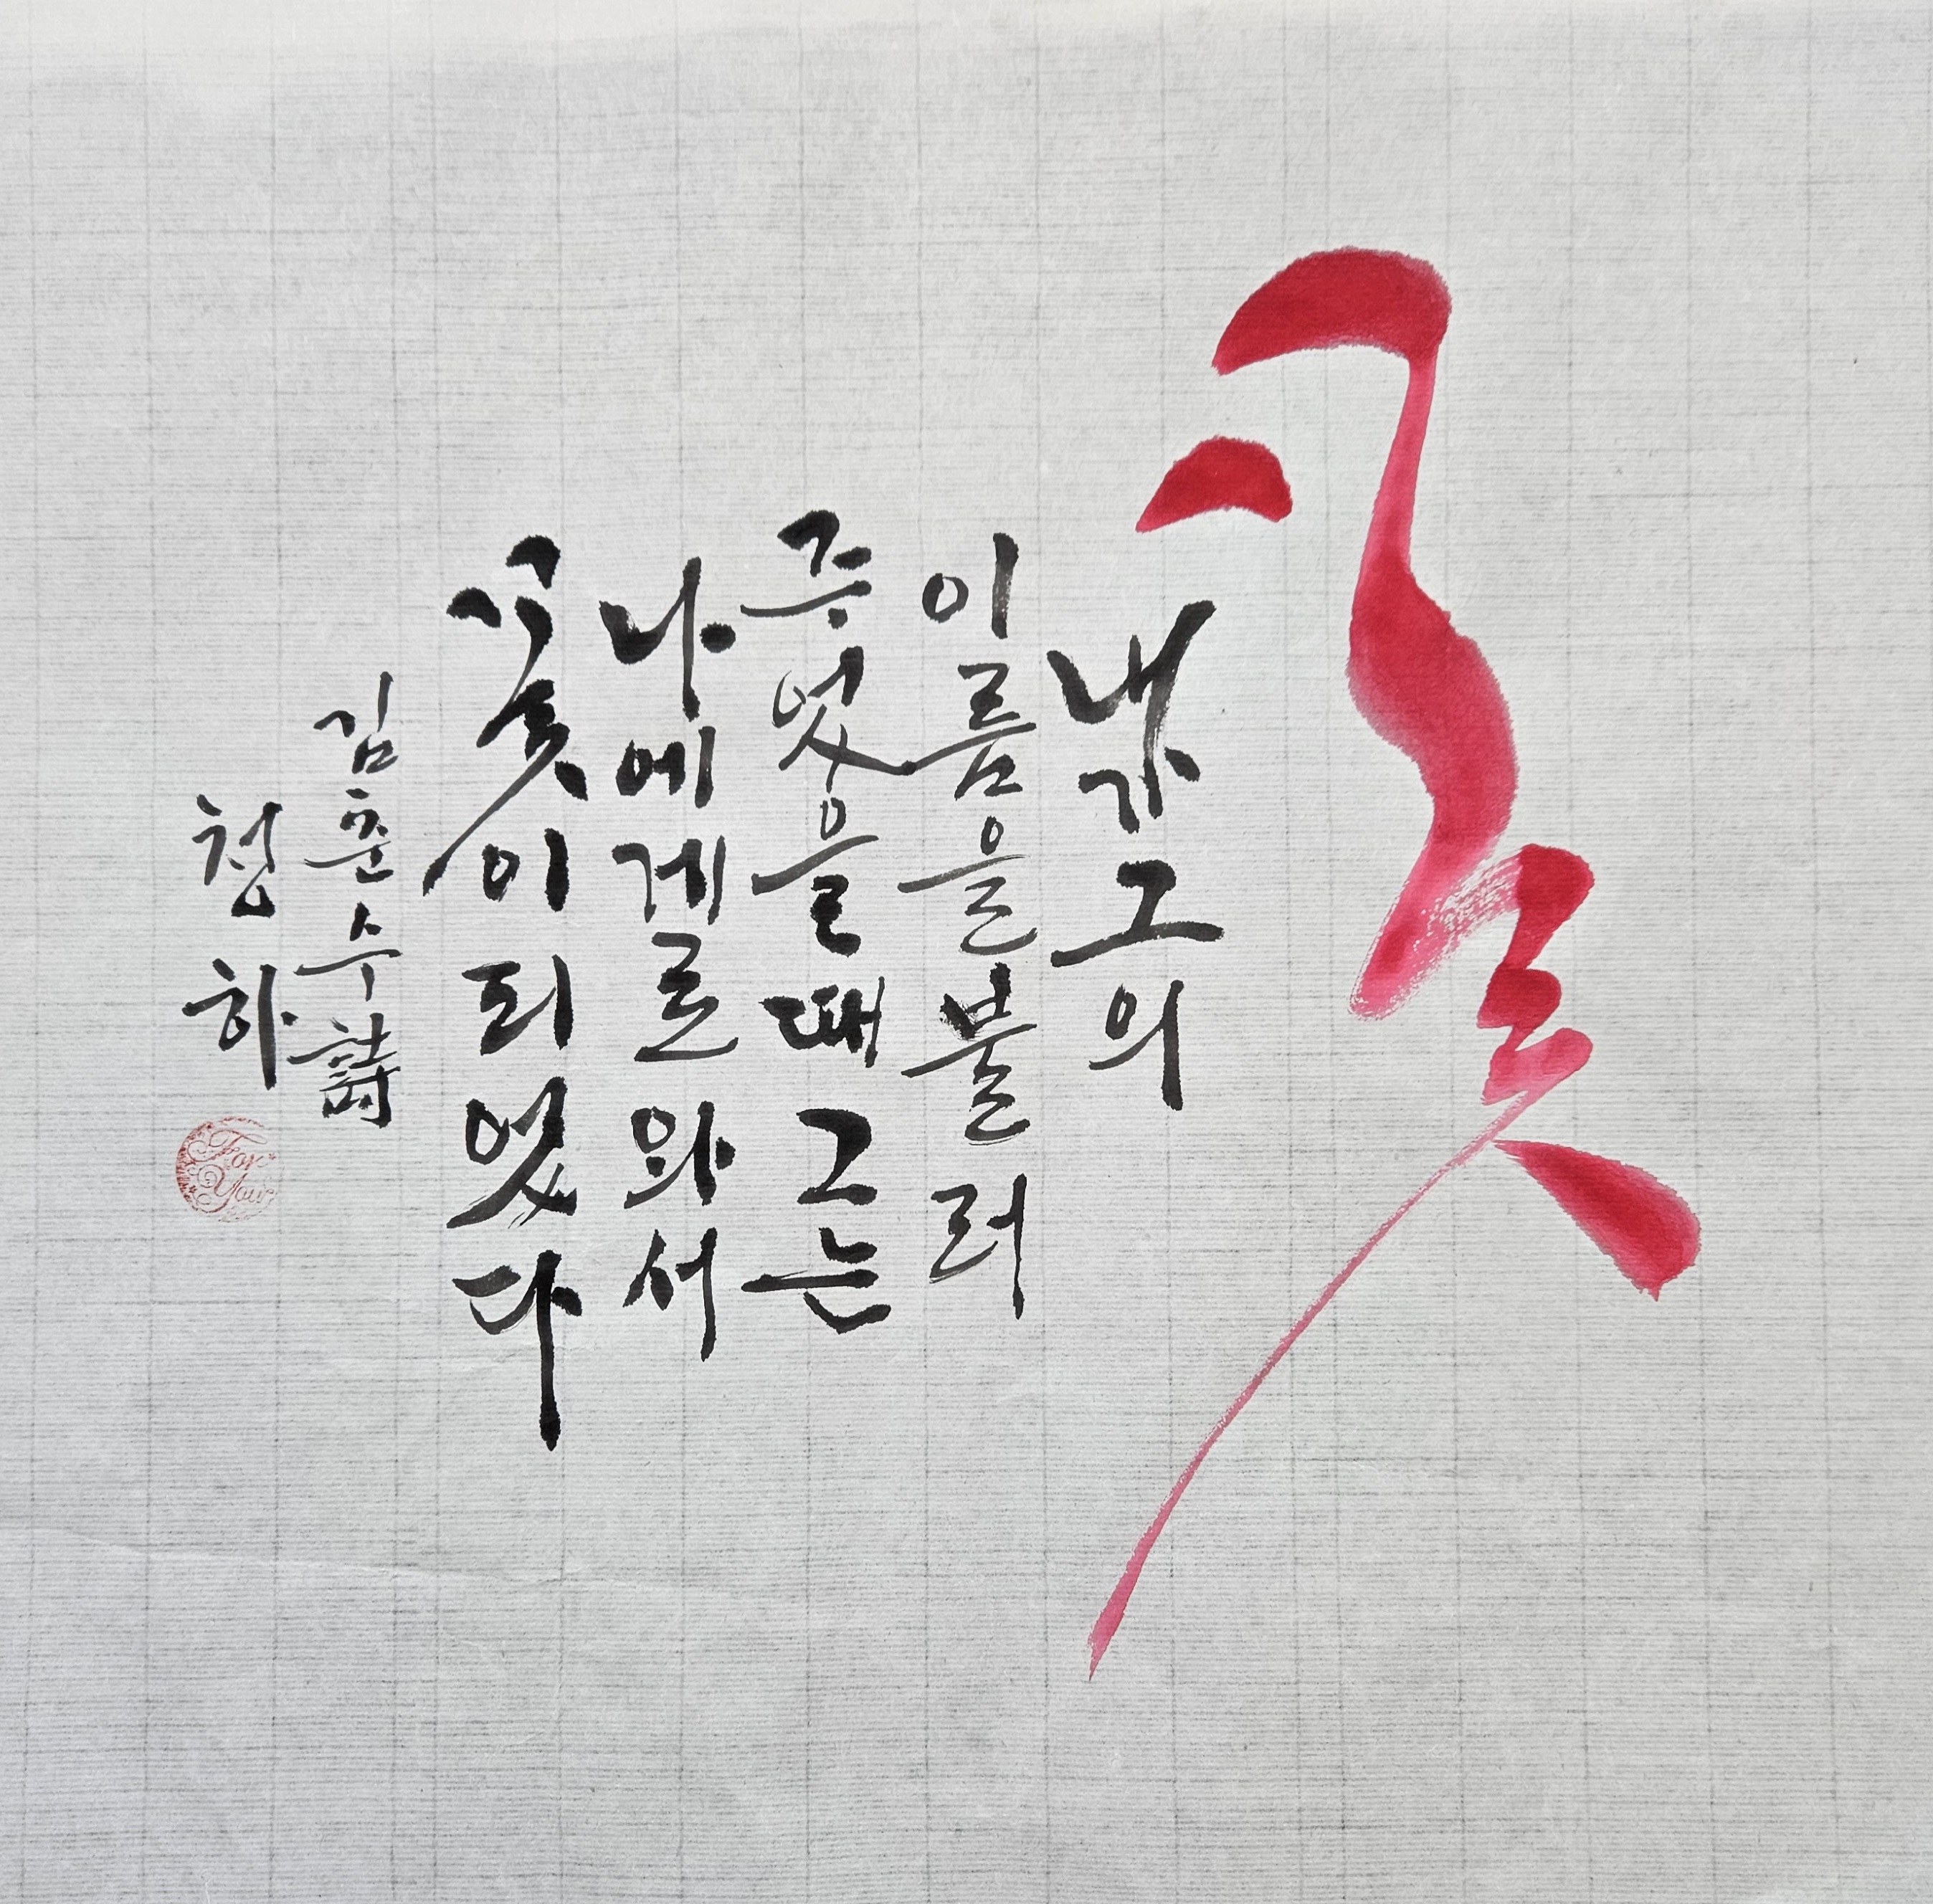 꽃
내가 그의
이름을 불러
주었을 때 그는
나에게로 와서
꽃이 되었다
김춘수 詩
청하
For
You